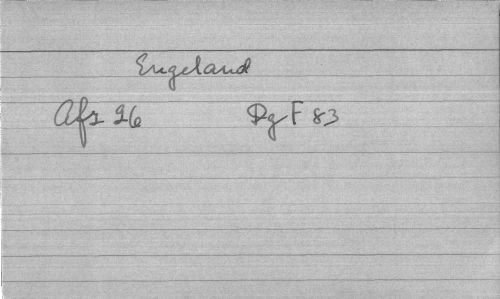 Engeland
Afz 26 Dg F 83